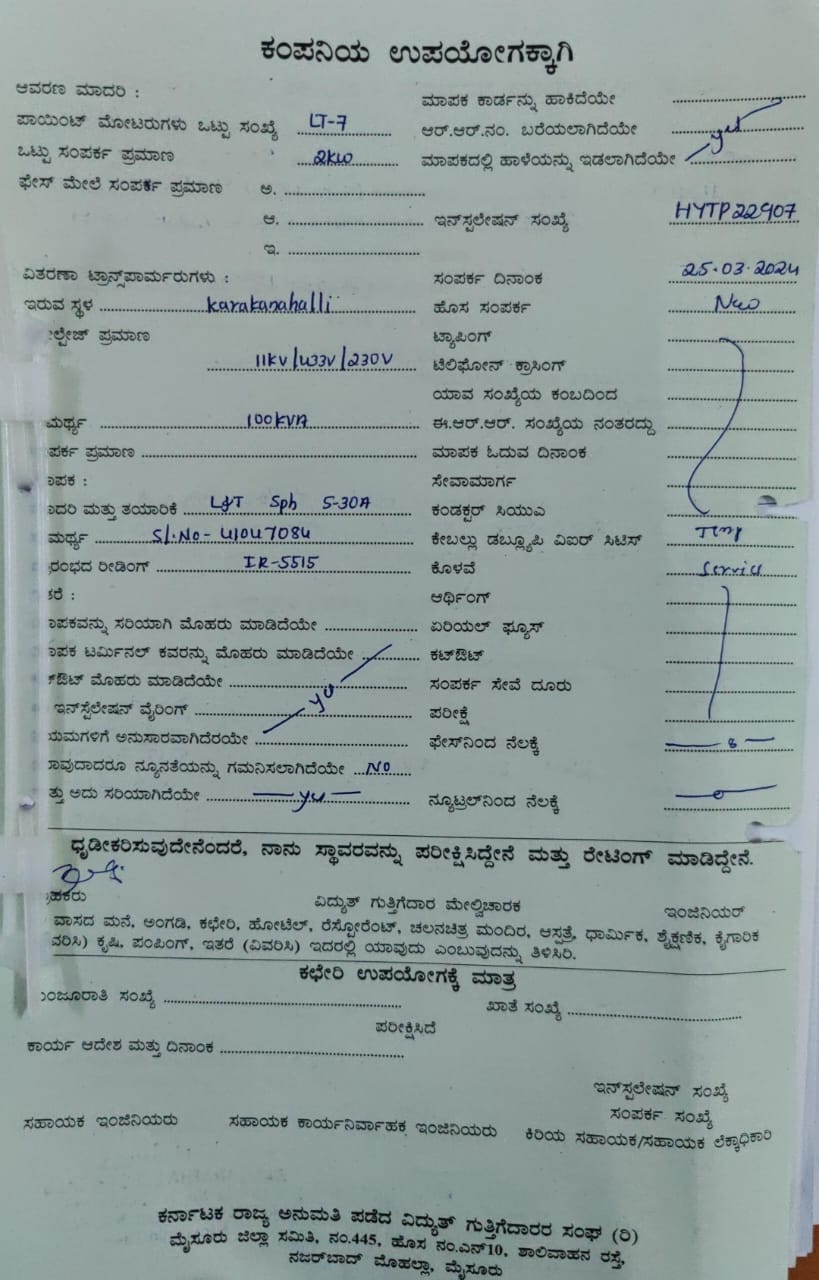 ಕಂಪನಿಯ ಉಪಯೋಗಕ್ಕಾಗಿ
ಆವರಣ ಮಾದರಿ : ಮಾಪಕ ಕಾರ್ಡನ್ನು ಹಾಕಿದೆಯೇ
ಪಾಯಿಂಟ್ ಮೋಟರುಗಳು ಒಟ್ಟು ಸಂಖ್ಯೆ LT-7 ಆರ್.ಆರ್.ನಂ. ಬರೆಯಲಾಗಿದೆಯೇ yes
ಒಟ್ಟು ಸಂಪರ್ಕ ಪ್ರಮಾಣ 2kw ಮಾಪಕದಲ್ಲಿ ಹಾಳೆಯನ್ನು ಇಡಲಾಗಿದೆಯೇ
ಫೇಸ್ ಮೇಲೆ ಸಂಪರ್ಕ ಪ್ರಮಾಣ ಅ.
ಆ. ಇನ್‌ಸ್ಟಲೇಷನ್ ಸಂಖ್ಯೆ HYTP22907
ಇ.
ವಿತರಣಾ ಟ್ರಾನ್ಸ್‌ಪಾರ್ಮರುಗಳು : ಸಂಪರ್ಕ ದಿನಾಂಕ 25.03.2024
ಇರುವ ಸ್ಥಳ Karakanahalli ಹೊಸ ಸಂಪರ್ಕ New
ಲ್ಟೇಜ್ ಪ್ರಮಾಣ ಟ್ಯಾಪಿಂಗ್
11KV/433V/230V ಟೆಲಿಫೋನ್ ಕ್ರಾಸಿಂಗ್
ಯಾವ ಸಂಖ್ಯೆಯ ಕಂಬದಿಂದ
ಮರ್ಥ್ಯ 100KVA ಈ.ಆರ್.ಆರ್. ಸಂಖ್ಯೆಯ ನಂತರದ್ದು
ಪರ್ಕ ಪ್ರಮಾಣ ಮಾಪಕ ಓದುವ ದಿನಾಂಕ
ಾಪಕ : ಸೇವಾಮಾರ್ಗ
ಾದರಿ ಮತ್ತು ತಯಾರಿಕೆ L&T Sph 5-30A ಕಂಡಕ್ಟರ್ ಸಿಯುಎ
ಮರ್ಥ್ಯ Sl.No- 41047084 ಕೇಬಲ್ಲು ಡಬ್ಲ್ಯೂಪಿ ವಿಐರ್ ಸಿಟಿಸ್ Temp
ರಂಭದ ರೀಡಿಂಗ್ IR-5515 ಕೊಳವೆ Service
ಕರೆ : ಆರ್ಥಿಂಗ್
ಾಪಕವನ್ನು ಸರಿಯಾಗಿ ಮೊಹರು ಮಾಡಿದೆಯೇ ಏರಿಯಲ್ ಫ್ಯೂಸ್
ಾಪಕ ಟರ್ಮಿನಲ್ ಕವರನ್ನು ಮೊಹರು ಮಾಡಿದೆಯೇ ಕಟ್‌ಔಟ್
ಟ್‌ಔಟ್ ಮೊಹರು ಮಾಡಿದೆಯೇ yes ಸಂಪರ್ಕ ಸೇವೆ ದೂರು
ಇನ್‌ಸ್ಟೆಲೇಷನ್ ವೈರಿಂಗ್ ಪರೀಕ್ಷೆ
ಯಮಗಳಿಗೆ ಅನುಸಾರವಾಗಿದೆರಯೇ ಫೇಸ್‌ನಿಂದ ನೆಲಕ್ಕೆ
ಾವುದಾದರೂ ನ್ಯೂನತೆಯನ್ನು ಗಮನಿಸಲಾಗಿದೆಯೇ NO
ತ್ತು ಅದು ಸರಿಯಾಗಿದೆಯೇ yes ನ್ಯೂಟ್ರಲ್‌ನಿಂದ ನೆಲಕ್ಕೆ
ಧೃಡೀಕರಿಸುವುದೇನೆಂದರೆ, ನಾನು ಸ್ಥಾವರವನ್ನು ಪರೀಕ್ಷಿಸಿದ್ದೇನೆ ಮತ್ತು ರೇಟಿಂಗ್ ಮಾಡಿದ್ದೇನೆ.
ಹಕರು ವಿದ್ಯುತ್ ಗುತ್ತಿಗೆದಾರ ಮೇಲ್ವಿಚಾರಕ ಇಂಜಿನಿಯರ್
ವಾಸದ ಮನೆ, ಅಂಗಡಿ, ಕಛೇರಿ, ಹೋಟೆಲ್, ರೆಸ್ಟೋರೆಂಟ್, ಚಲನಚಿತ್ರ ಮಂದಿರ, ಆಸ್ಪತ್ರೆ, ಧಾರ್ಮಿಕ, ಶೈಕ್ಷಣಿಕ, ಕೈಗಾರಿಕ
ವರಿಸಿ) ಕೃಷಿ, ಪಂಪಿಂಗ್, ಇತರೆ (ವಿವರಿಸಿ) ಇದರಲ್ಲಿ ಯಾವುದು ಎಂಬುವುದನ್ನು ತಿಳಿಸಿರಿ.
ಕಛೇರಿ ಉಪಯೋಗಕ್ಕೆ ಮಾತ್ರ
ಂಜೂರಾತಿ ಸಂಖ್ಯೆ ಖಾತೆ ಸಂಖ್ಯೆ
ಪರೀಕ್ಷಿಸಿದೆ
ಕಾರ್ಯ ಆದೇಶ ಮತ್ತು ದಿನಾಂಕ
ಇನ್‌ಸ್ಟಲೇಷನ್ ಸಂಖ್ಯೆ
ಸಂಪರ್ಕ ಸಂಖ್ಯೆ
ಸಹಾಯಕ ಇಂಜಿನಿಯರು ಸಹಾಯಕ ಕಾರ್ಯನಿರ್ವಾಹಕ ಇಂಜಿನಿಯರು ಕಿರಿಯ ಸಹಾಯಕ/ಸಹಾಯಕ ಲೆಕ್ಕಾಧಿಕಾರಿ
ಕರ್ನಾಟಕ ರಾಜ್ಯ ಅನುಮತಿ ಪಡೆದ ವಿದ್ಯುತ್ ಗುತ್ತಿಗೆದಾರರ ಸಂಘ (ರಿ)
ಮೈಸೂರು ಜಿಲ್ಲಾ ಸಮಿತಿ, ನಂ.445, ಹೊಸ ನಂ.ಎನ್10, ಶಾಲಿವಾಹನ ರಸ್ತೆ,
ನಜರ್‌ಬಾದ್ ಮೊಹಲ್ಲಾ, ಮೈಸೂರು